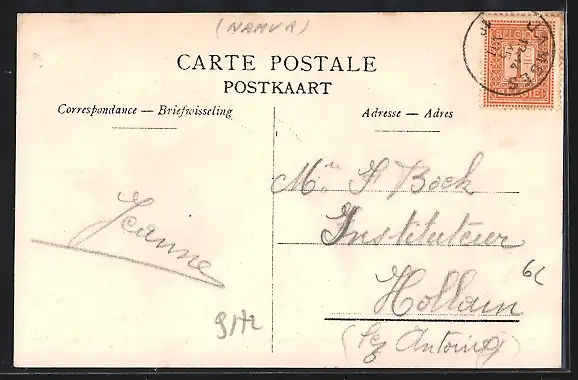 (NAMUR)
CARTE POSTALE
POSTKAART
Correspondance — Briefwisseling
Adresse — Adres
Jeanne
Bock
Instituteur
Hollain
(Lez Antoing)
6c